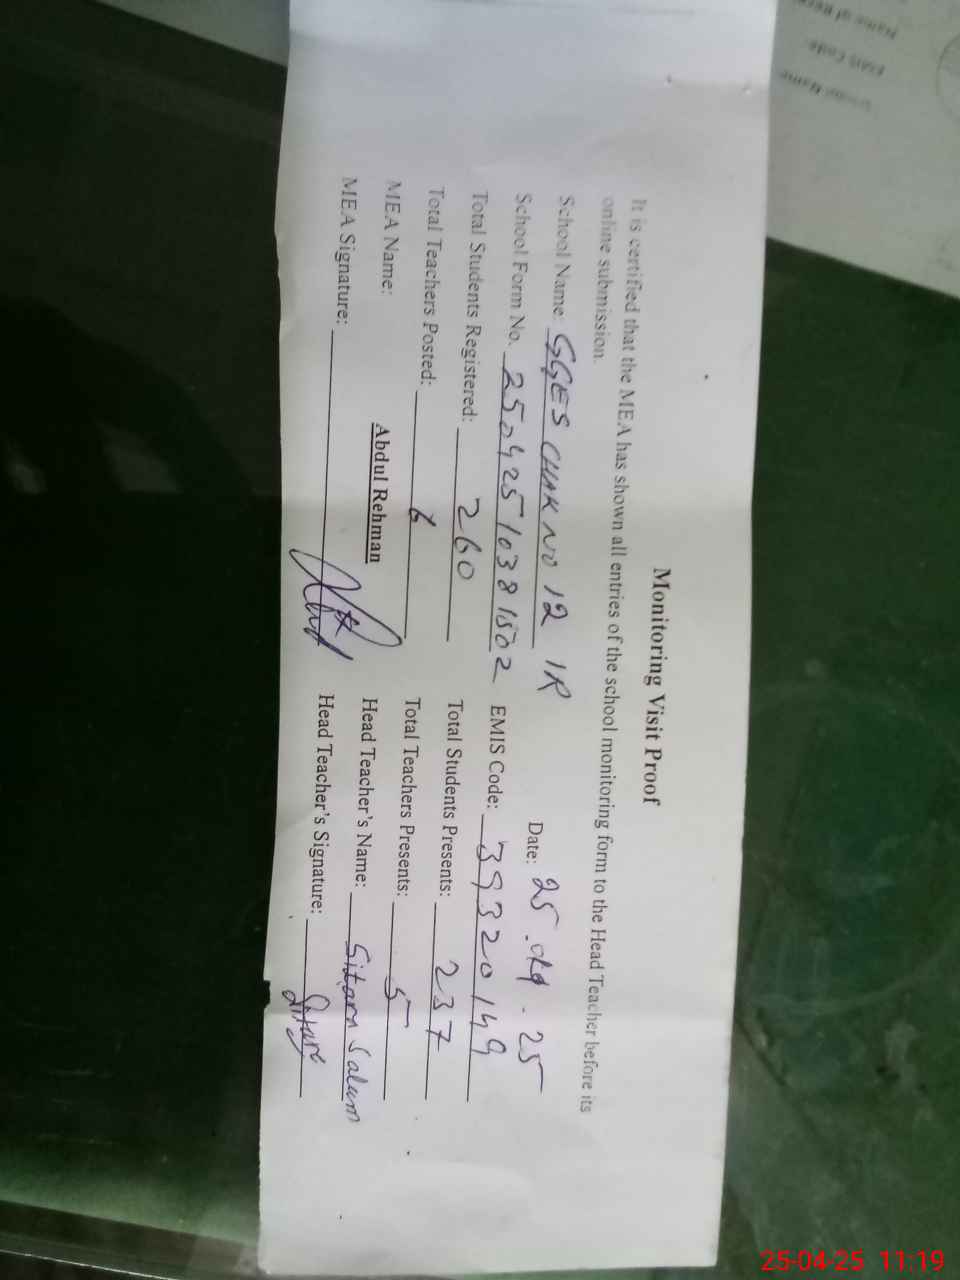 Monitoring Visit Proof
It is certified that the MEA has shown all entries of the school monitoring form to the Head Teacher before its
online submission.
Date: 25.04.25
School Name: GGES CHAK NO 12 1R
School Form No. 25042510381502 EMIS Code: 39320149
Total Students Registered: 260 Total Students Presents: 237
Total Teachers Posted: 6 Total Teachers Presents: 5
MEA Name: Abdul Rehman Head Teacher's Name: Sitara Salum
MEA Signature: Head Teacher's Signature: Sitara
EMIS Code
25-04-25 11:19